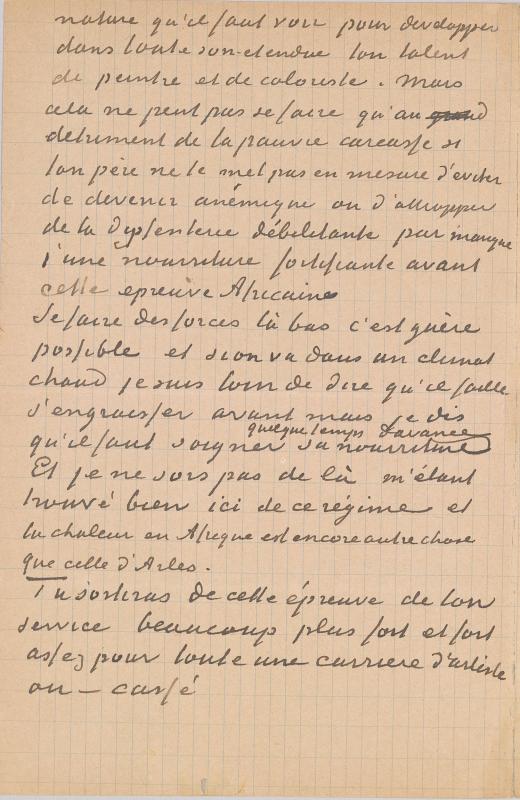 nature qu'il faut voir pour developper
dans toute son etendue ton talent
de peintre et de coloriste. Mais
cela ne peut pas se faire qu'au grand
detriment de ta pauvre carcasse si
ton père ne te met pas en mesure d'eviter
de devenir anémique ou d'attrapper
de la dyssenterie débilitante par manque
d'une nourriture fortifiante avant
cette epreuve Africaine
Se faire des forces là bas c'est guère
possible et si on va dans un climat
chaud je suis loin de dire qu'il faille
s'engraisser avant mais je dis
qu'il faut soigner sa nourriture quelque temps d'avance
Et je ne sors pas de là m'étant
trouvé bien ici de ce régime et
la chaleur en Afrique est encore autre chose
que celle d'Arles.
Tu sortiras de cette épreuve de ton
service beaucoup plus fort et fort
assez pour toute une carriere d'artiste
ou – cassé